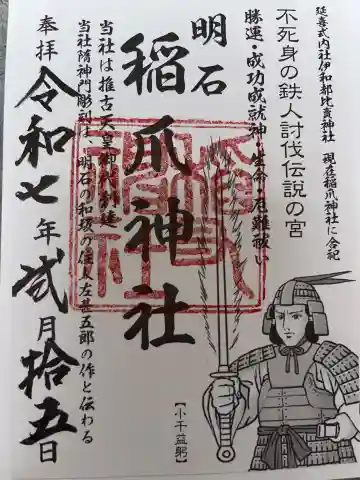 延喜式内社伊和都比賣神社　現在稲爪神社に合祀
不死身の鉄人討伐伝説の宮
勝運・成功成就神・生命・厄難祓い
明石
稲爪神社
当社は推古天皇御代創建
当社隋神門彫刻は、明石の和坂の住人左甚五郎の作と伝わる
奉拝
令和七年弐月拾五日
【小千益躬】